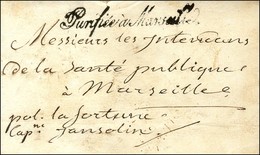 Purifiée à Marseille
Messieurs les Intendans
de la Santé publique
à Marseille
pol. la fortune
Capne Jansolin